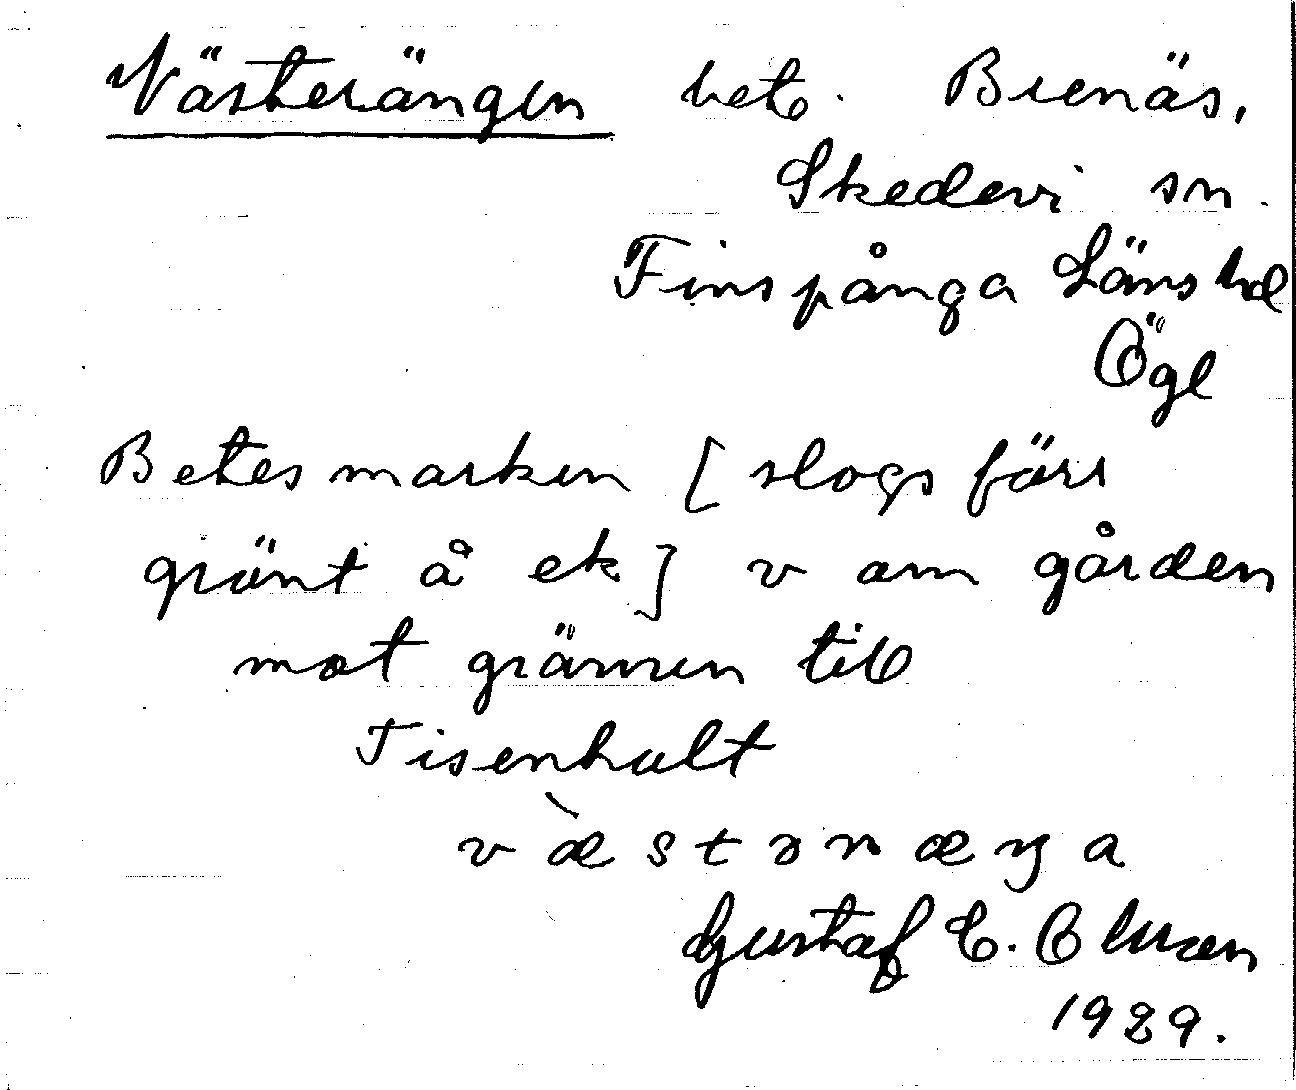 Västerängen bet. Brenäs,
Skedevi sn.
Finspånga Läns hd
Ögl
Betesmarken [slogs förr
grönt å ek] v om gården
mot gränsen till
Tisenhult
væ̀stəɲæŋa
Gustaf E. Olsson
1929.